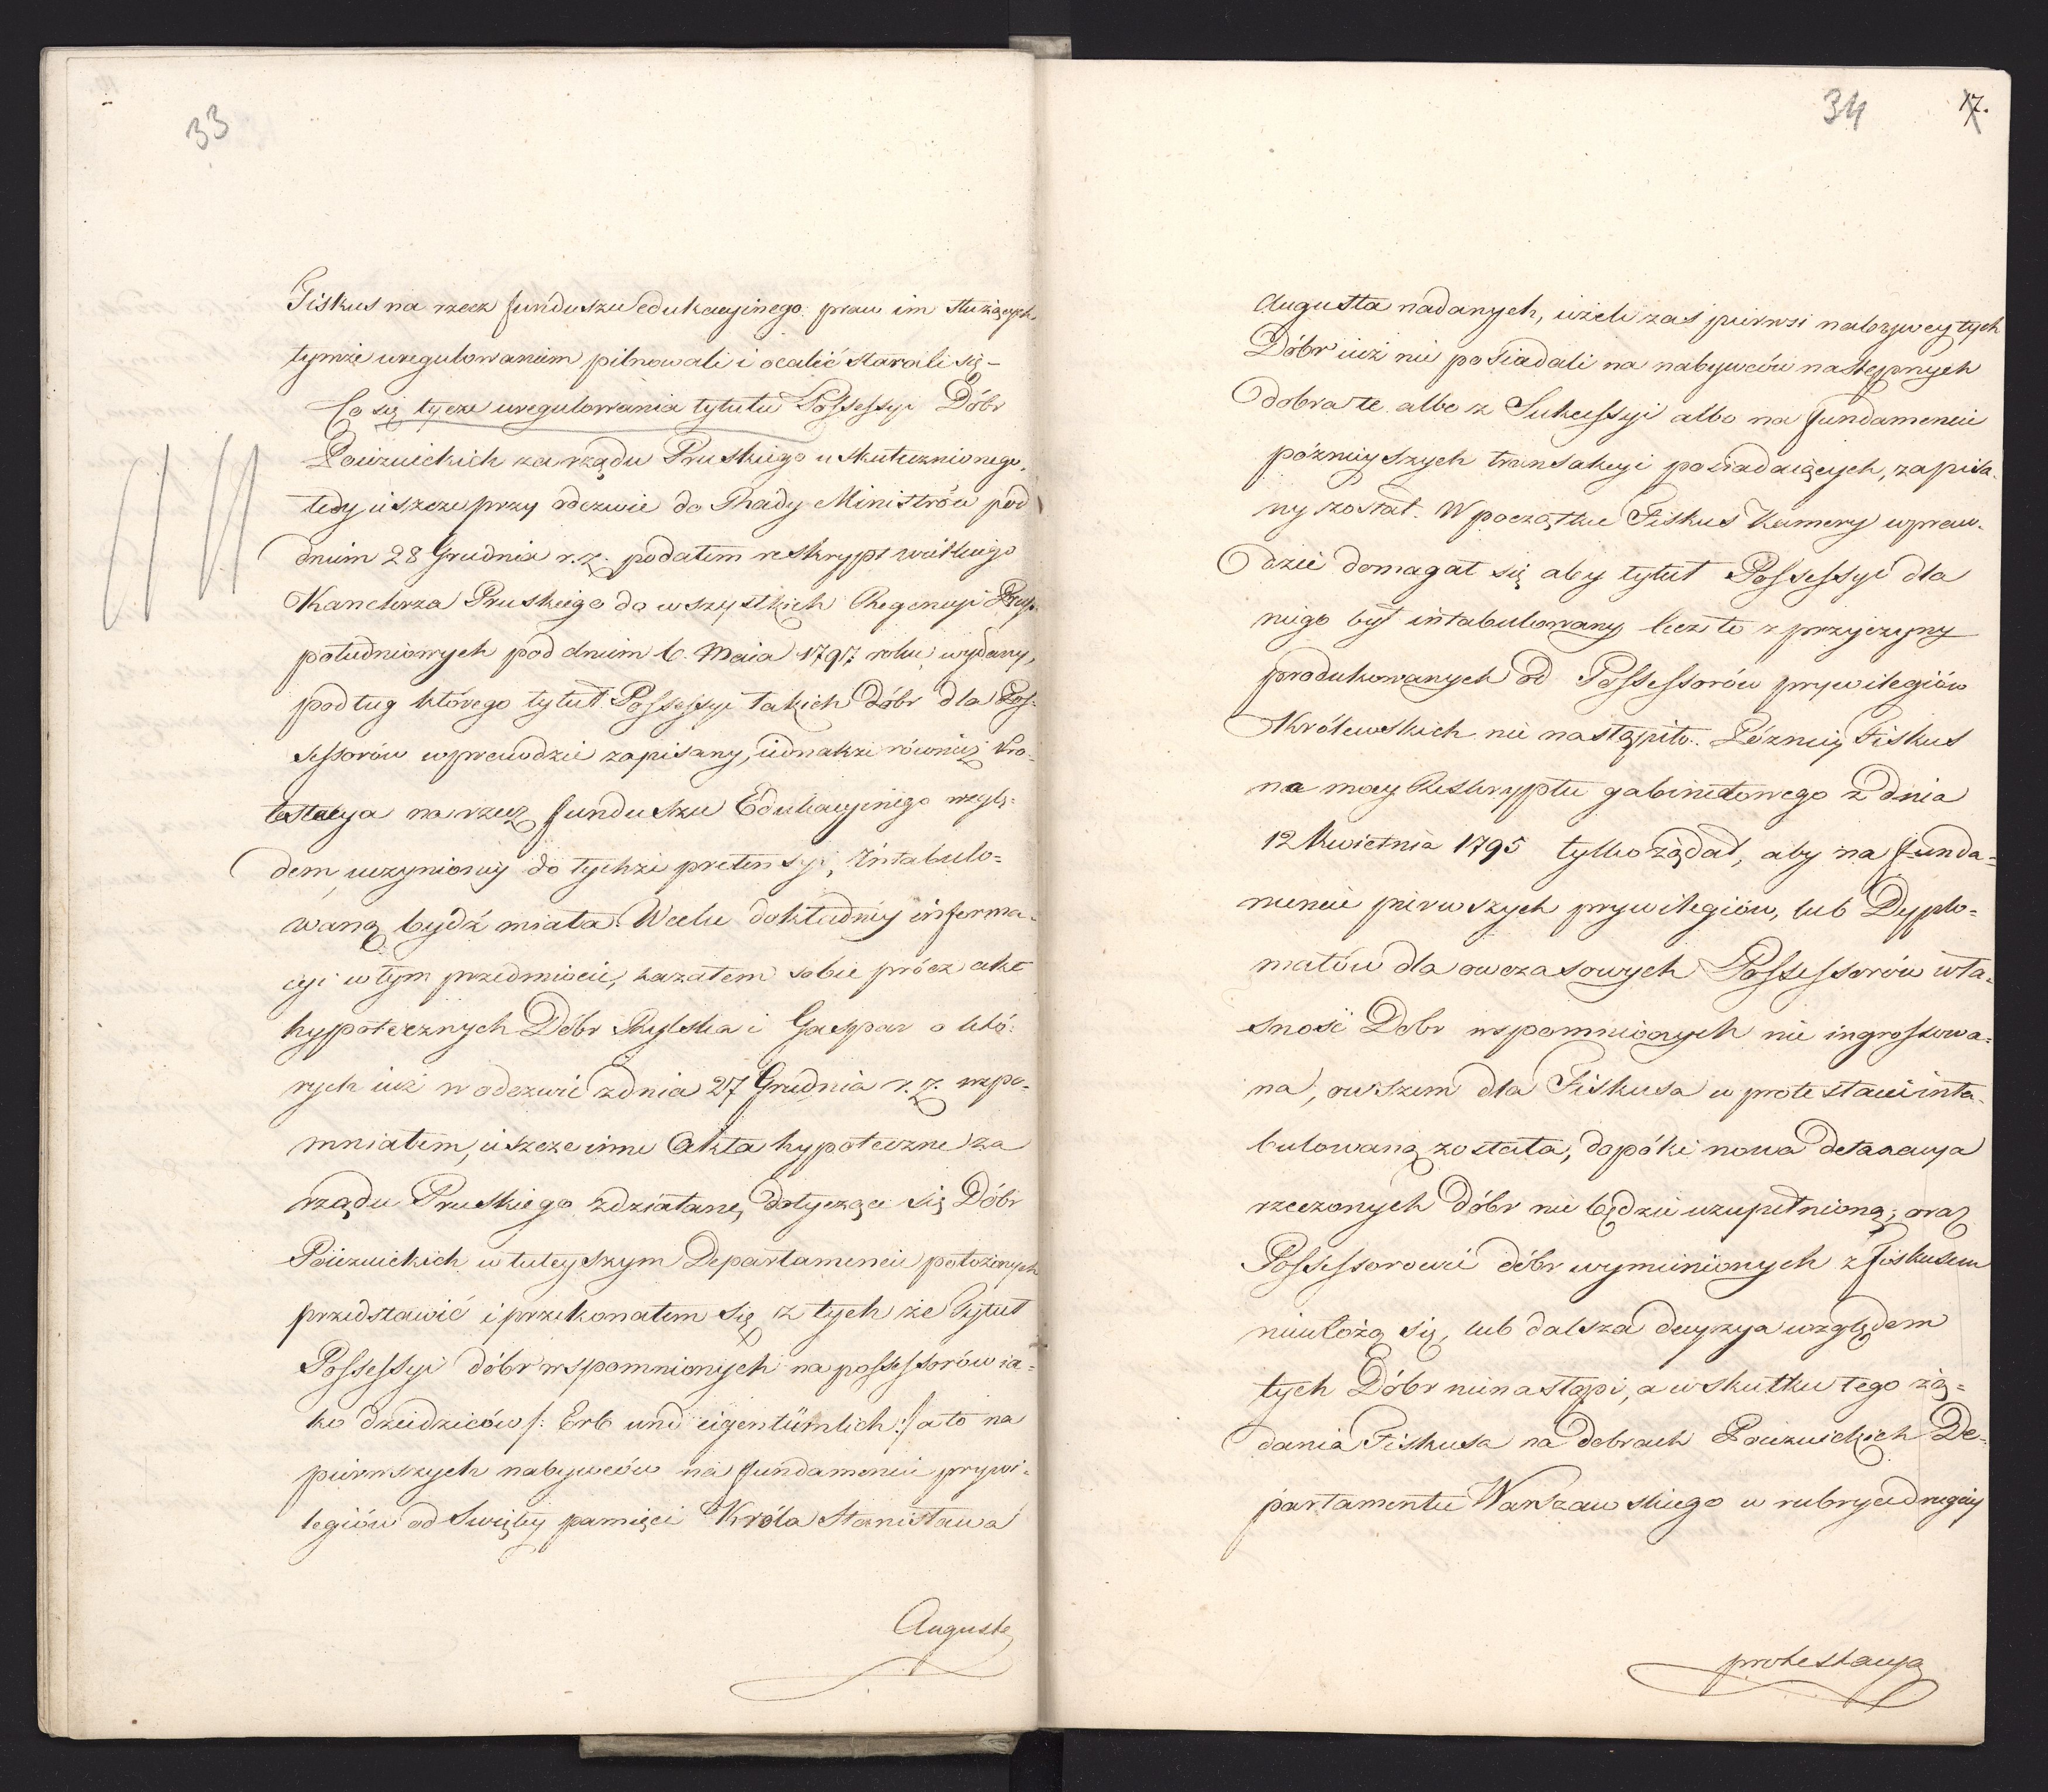 33
Fiskus na rzecz funduszu edukacyinego praw im służących
tymże uregulowaniem pilnowali i ocalić starali się –
Co się tycze uregulowania tytułu Possessyi Dóbr
Poiezuickich za rządu Pruskiego uskutecznionego,
tedy ieszcze przy odezwie do Rady Ministrów pod
dniem 28 Grudnia r. z. podałem reskrypt wielkiego
Kanclerza Pruskiego do wszystkich Regencyi Prus
południowych pod dniem 6. Maia 1797 roku wydany,
podług którego tytuł Possessyi takich Dóbr dla Pos-
sessorów wprawdzie zapisany, iednakże również Pro-
testacya na rzecz funduszu Edukacyinego wzglę-
dem uczynioney do tychże pretensyi, Intabulo-
waną bydź miała. W celu dokładney informa-
cyi w tym przedmiocie, kazałem sobie prócz akt
hypotecznych Dóbr Rylska i Gaeppar o któ-
rych iuż w odezwie z dnia 27 Grudnia r. z. wspo-
mniałem, ieszcze inne Akta hypoteczne za
rządu Pruskiego zdziałane, dotyczące się Dóbr
Poiezuickich w tuteyszym Departamencie położonych
przedstawić i przekonałem się z tych że Tytuł
Possessyi dóbr wspomnionych na possessorów ia-
ko dziedziców /: Erb und eigentümlich :/ a to na
pierwszych nabywców na fundamencie przywi-
legiów od Swiętey pamięci Króla Stanisława
Augusta
34
17.
Augusta nadanych, ieżeli zaś pierwsi nabywcy tych
Dóbr iuż nie posiadali na nabywców następnych
dobra te albo z Sukcessyi albo na fundamencie
późnieyszych transakcyi posiadaiących, zapisa-
ny został. W początku Fiskus Kamery wpraw-
dzie domagał się aby tytuł Possessyi dla
niego był intabulowany lecz to z przyczyny
produkowanych od Possessorów prywilegiów
Królewskich nie nastąpiło. Pózniey Fiskus
na mocy Reskryptu gabinetowego z dnia
12 Kwietnia 1795 tylko żądał, aby na funda-
mencie pierwszych prywilegiów, lub Dyplo-
matów dla owczasowych Possessorów wła-
sność Dobr wspomnionych nie ingrossowa-
na, owszem dla Fiskusa w protestacii inta-
bulowaną została, dopóki nowa detaxacya
rzeczonych dóbr nie będzie uzupełnioną; oraz
Possessorowie dóbr wymienionych z Fiskusem
nieułożą się, lub dalsza decyzya względem
tych Dóbr nienastąpi, a w skutku tego żą-
dania Fiskusa na dobrach Poiezuickich De-
partamentu Warszawskiego w rubryce drugiey
protestacya